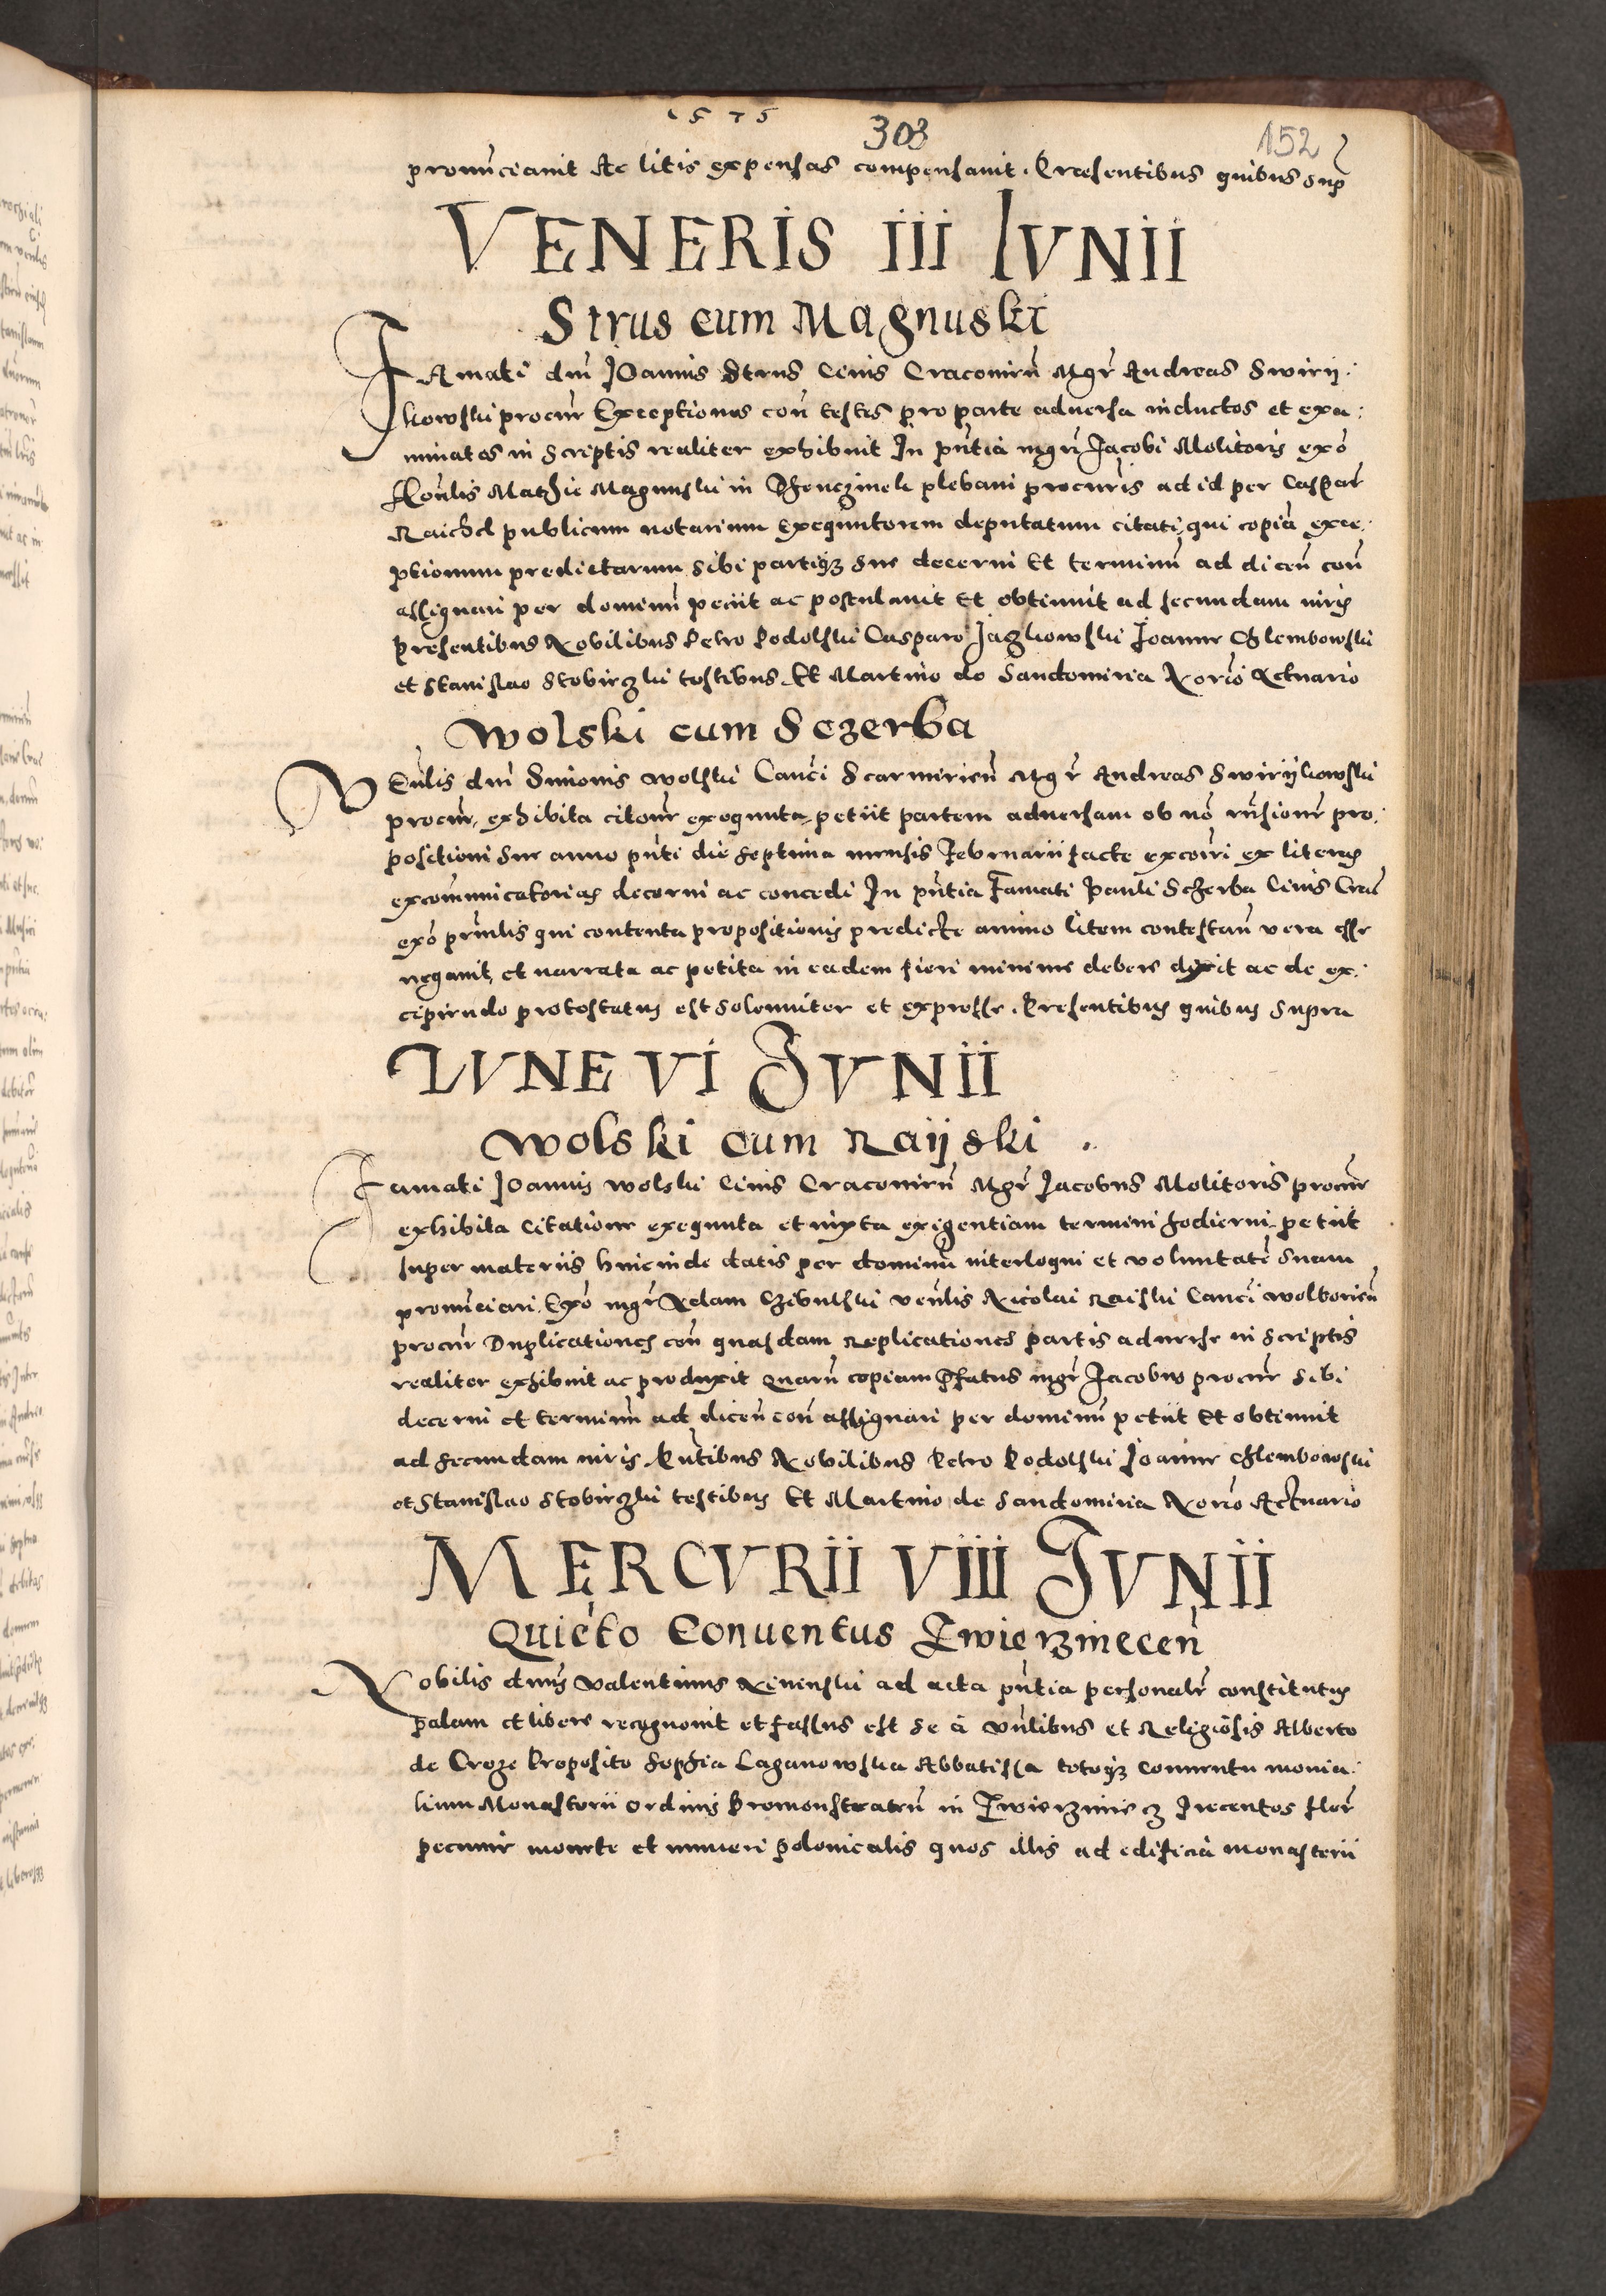 1575
303
152
pronūciavit Ac litis expensas compensavit. Presentibus quibus sup
VENERIS III IVNII
Strus cum Magnuski
FAmati dnī Joannis Strus Civis Cracovieñ Mgr Andreas Swirij-
kowski procur Exceptiones coñ testes pro parte adversa inductos et exa-
minatos in scriptis realiter exhibuit In pñtia mgri Jacobi Molitoris exō
Hoñlis Mathie Magnuski in plebani procuris ad id per Caspar
publicum notarium Exequutorem deputatum citati, qui copiā exce-
ptionum predictarum sibi partiqz sue decerni Et terminū ad diceñ coñ
assignari per dominū petiit ac postulavit Et obtinuit ad secundam iuris
Presentibus Nobilibus Petro Podolski Casparo Jazkowski Joanne Chlembowski
et Stanislao Stobieczki testibus Et Martino de Sandomiria Norio Actuario
Wolski cum Sczerba
VEñlis dnī Simonis Wolski Cañci Scarmirieñ Mgr Andreas Swirijkowski
procur, exhibita citoñe exequuta, petiit partem adversam ob nō rñsionē pro-
positioni sue anno pñti die septima mensis Februarii facte excoīri ex literas
excommunicatorias decerni ac concedi In pñtia Famati Pauli Sczerba Civis Crac
exō priñlis qui contenta propositionis predicte animo litem contestañ vera esse
negavit, et narrata ac petita in eadem fieri minime debere dixit ac de ex-
cipiendo protestatus est solenniter et expresse. Presentibus quibus supra
LVNE VI IVNII
Wolski cum Raijski
Famati Joannis Wolski Civis Cracovieñ Mgr Jacobus Molitoris procur
exhibita Citatione exequuta et iuxta exigentiam termini hodierni, petiit
super materiis hincinde datis per dominū interloqui et voluntatē suam
pronūciari. Exō mgr Adam Czibulski veñlis Nicolai Raiski Cañci Wolborieñ
procur Duplicationes coñ quasdam Replicationes partis adverse in scriptis
realiter exhibuit ac produxit Quarū copiam pfatus mgr Jacobus procur sibi
decerni et terminū ad diceñ coñ assignari per dominū petiit Et obtinuit
ad secundam iuris. Pñtibus Nobilibus Petro Podolski Joanne Chlembowski
et Stanislao Stobieczki testibus Et Martino de Sandomiria Norio Actuario
MERCVRII VIII IVNII
Quieto Conventus Zwierzinecen
Nobilis dnus Valentinus ad acta pñtia personalr constitutus
palam et libere recognovit et fassus est se a veñlibus et Religiosis Alberto
de Croze Preposito Sophia Laganowska Abbatissa totoqz conventu monia-
lium Monasterii ordinis Premonstrateñ in Zwierziniecz Trecentos flor
pecunie monete et numeri polonicalis quos illis ad edificia monasterii